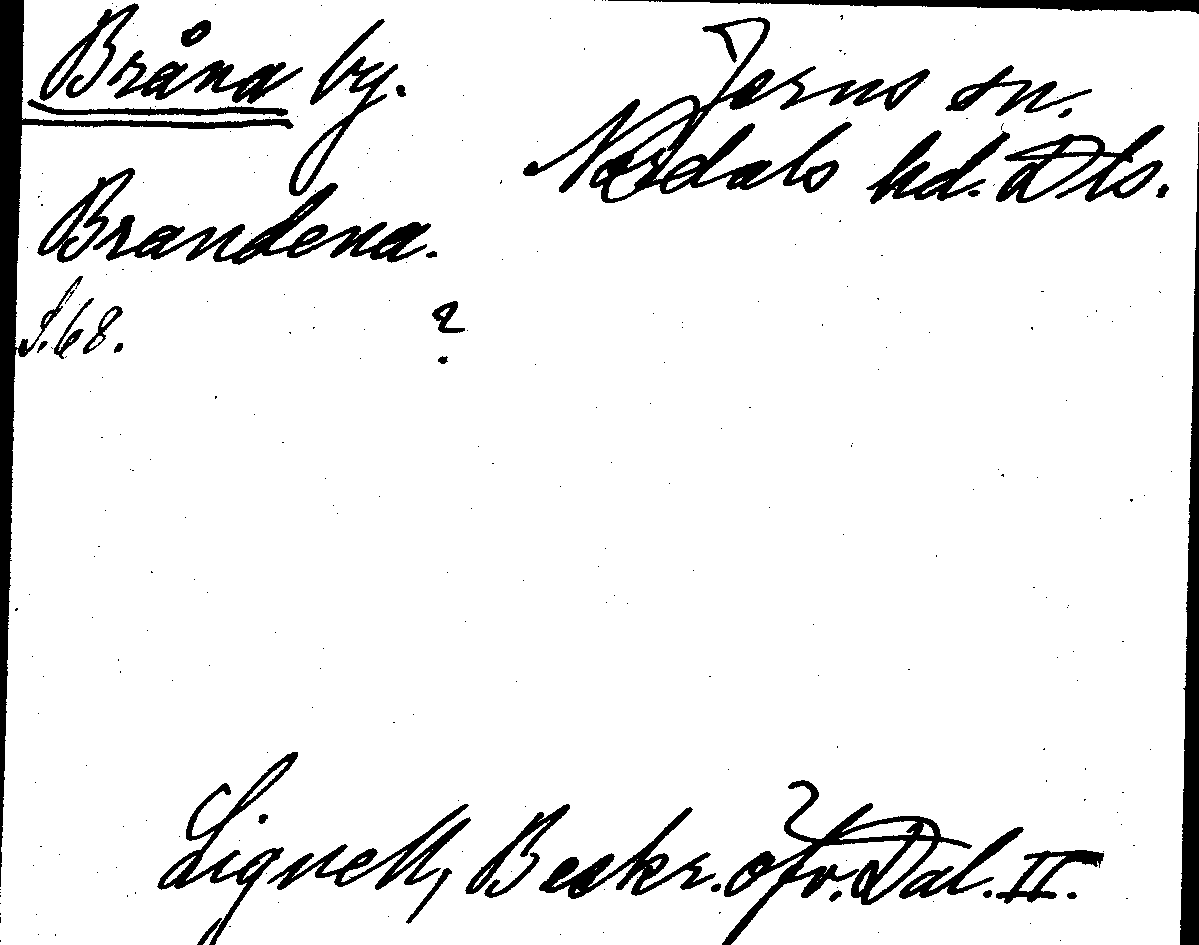 Bråna by.
Jerns sn.
Nordals hd. Dls.
Brandena.
S. 68.
?
Lignell, Beskr. öfv. Dal. II.